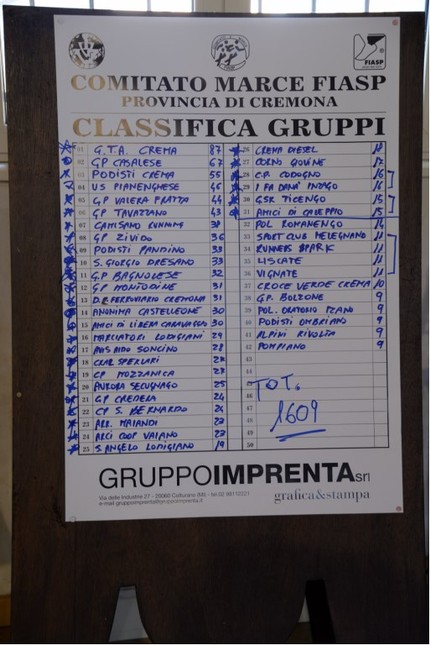 FIASP
COMITATO MARCE FIASP
PROVINCIA DI CREMONA
CLASSIFICA GRUPPI
01 G.T.A. CREMA 87
02 GP CASALESE 67
03 PODISTI CREMA 55
04 US PIANENGHESE 46
05 GP VALERA FRATTA 44
06 GP TAVAZZANO 43
07 CAMISANO RUNNING
08 GP ZIVIDO 36
09 PODISTI PANDINO 33
10 S. GIORGIO DRESANO 33
11 GP BAGNOLESE 32
12 GP MONTODINE 31
13 D.L. FERROVIARIO CREMONA 31
14 ANONIMA CASTELLEONE 30
15 AMICI DI LIBERA CARAVAGGIO 30
16 MARCIATORI LODIGIANI 29
17 AVIS AIDO SONCINO
18 CRAL SPERLARI
19 CP MOZZANICA
20 AURORA SECUGNAGO 25
21 GP CREDERA 24
22 CP S. BERNARDO 24
23 ARR. MAIANDI
24 ARCI COOP VAIANO
25 S. ANGELO LODIGIANO 19
26 CREMA DIESEL 18
27 CORNO GIOVINE 17
28 C.P. CODOGNO 16
29 I FA DANA' INZAGO 16
30 GSR TICENGO 15
31 AMICI DI CALEPPIO 15
32 POL ROMANENGO 14
33 SPORT CLUB MELEGNANO 11
34 RUNNERS 11
35 LISCATE 11
36 VIGNATE 11
37 CROCE VERDE CREMA 10
38 GP. BOLZONE 9
39 POL. ORATORIO 9
40 PODISTI OMBRIANO 9
41 ALPINI RIVOLTA 9
42 POMPIANO 9
43
44
45
46
47
48
49
50
TOT.
1609
GRUPPOIMPRENTAsrl
Via delle Industrie 27 - 20060 Colturano (MI) - tel.02 98112221
e-mail gruppoimprenta@gruppoimprenta.it
grafica&stampa